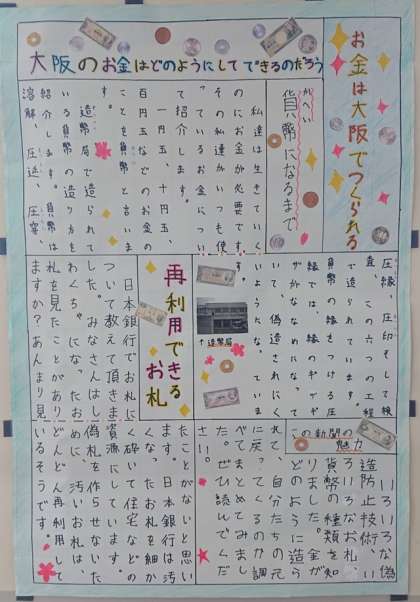 お金は大阪でつくられる
大阪のお金はどのようにしてできるのだろう
かへい
貨幣になるまで
私達は生きていく
のにお金が必要です。
その私達がいつも使
っているお金につい
て紹介します。
一円玉、十円玉、
百円玉などのお金の
ことを貨幣と言いま
す。
造幣局で造られて
いる貨幣の造り方を
紹介します。貨幣は
溶解、圧延、圧穿、
圧縁、圧印をして検
査、この六つの工程
で造られています。
貨幣の縁をつける圧
縁では、縁のギザギザ
がななめになって
いて、偽造されにく
いようになっていま
す。
↑造幣局
再利用できる
お札
日本銀行でお札に
ついて教えて頂きま
した。みなさんはし
わくちゃになったお
札を見たことがあり
ますか?あんまり見
たことがないと思い
ます。日本銀行は汚
くなったお札を細か
く砕いて住宅などの
資源にしています。
偽札を作らせないた
めに、汚いお札は、
どんどん再利用して
いるそうです。
この新聞の
魅力
いろいろな偽
造防止技術、い
ろいろなお札、
貨幣の種類を知
りました。お金が
どのように造ら
れて、自分たちの元
に戻ってくるのか調
べてまとめてみまし
た。ぜひ読んでくだ
さい。